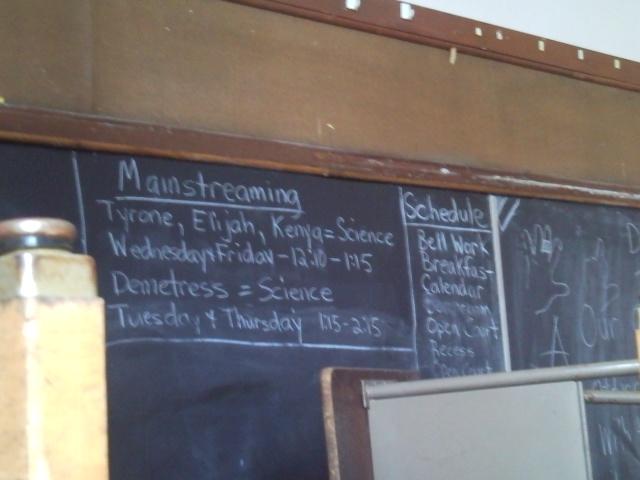 Mainstreaming
Tyrone, Elijah, Kenya = Science
Wednesday & Friday - 12:10 - 1:15
Demetress = Science
Tuesday & Thursday 1:15 - 2:15
Schedule
Bell Work
Breakfast
Calendar
Open Court
Recess
Open Court
A
Our